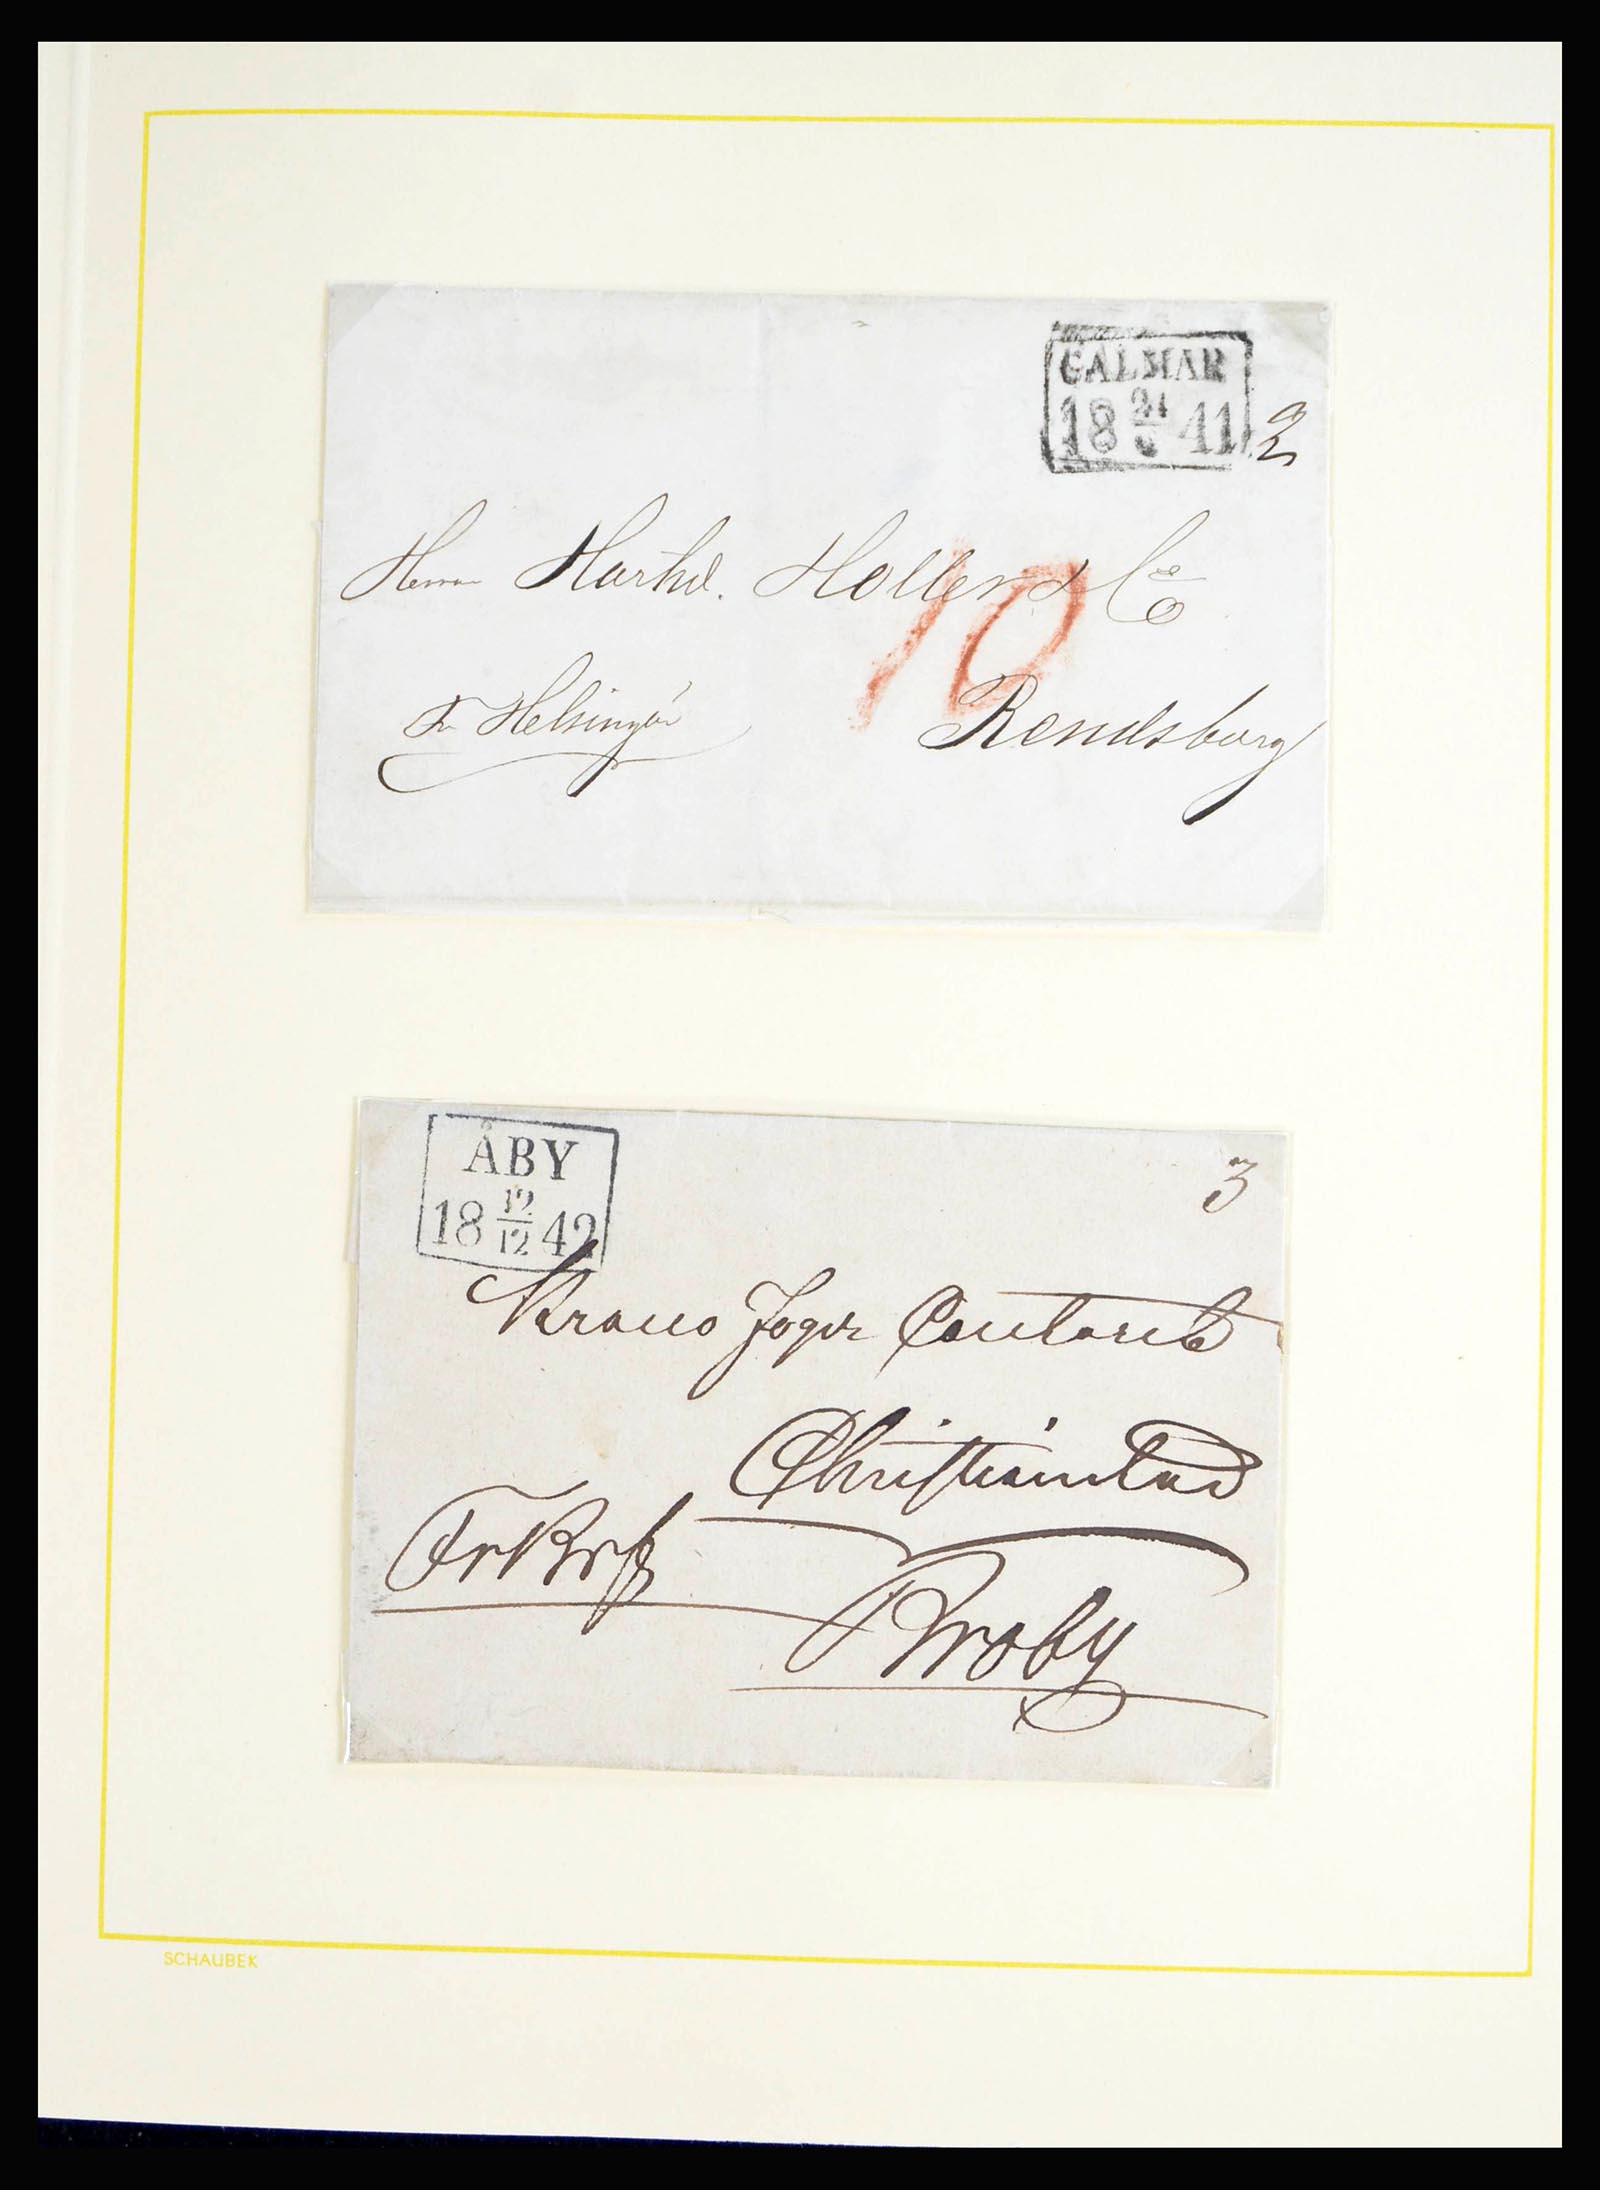 CALMAR
18 41
2
Herrar Hartvd. Holler & Co
10
Fr Helsingör
Rendsburg
ÅBY
18 12/12 42
3
Krono Fogde Contoret
Christianstad
Fr Bref
Broby
SCHAUBEK